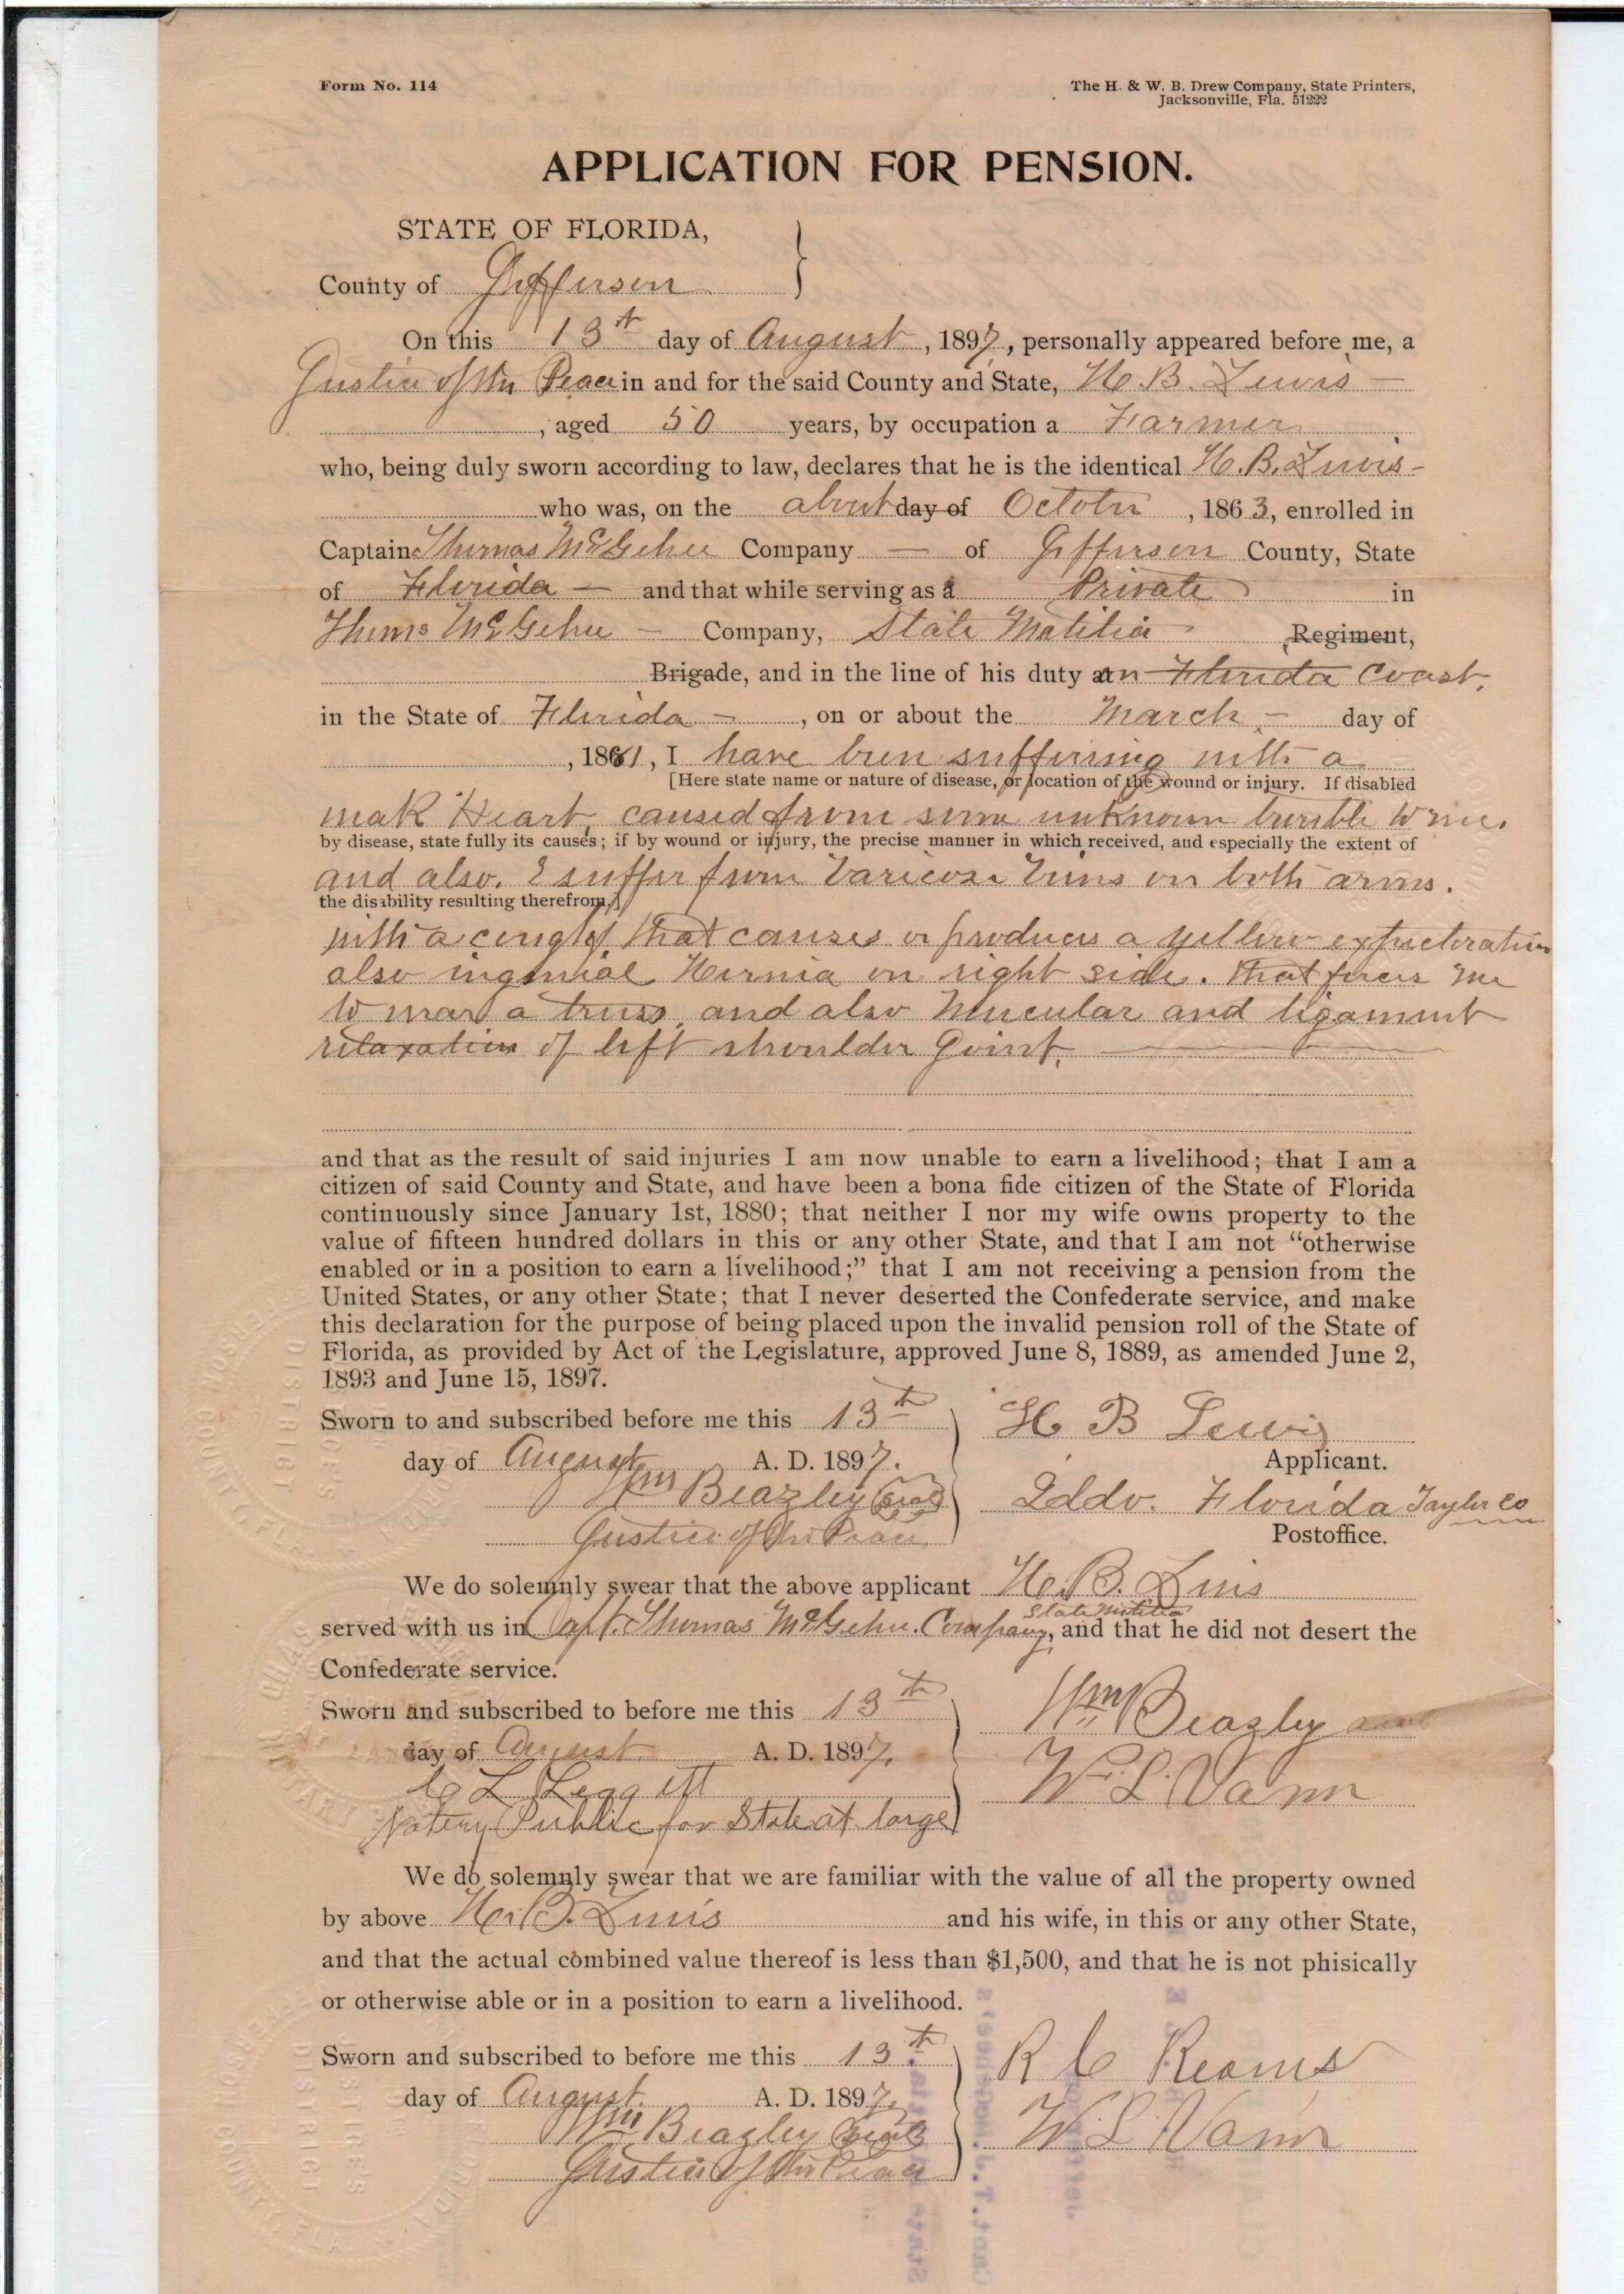 Form No. 114
The H. & W. B. Drew Company, State Printers,
Jacksonville, Fla. 51222
APPLICATION FOR PENSION.
STATE OF FLORIDA,
County of Jefferson
On this 13th day of August, 1897, personally appeared before me, a
Justice of the Peace in and for the said County and State, H. B. Lewis
, aged 50 years, by occupation a Farmer
who, being duly sworn according to law, declares that he is the identical H. B. Lewis
who was, on the about day of October, 1863, enrolled in
Captain Thomas McGehee Company — of Jefferson County, State
of Florida — and that while serving as a Private in
Thoms McGehee — Company, State Matilia Regiment,
Brigade, and in the line of his duty on Florida Coast.
in the State of Florida —, on or about the March — day of
, 1861, I have been suffering with a
[Here state name or nature of disease, or location of the wound or injury. If disabled
weak Heart, caused from some unknown trouble to me.
by disease, state fully its causes; if by wound or injury, the precise manner in which received, and especially the extent of
and also. I suffer from Varicose Veins on both arms.
the disability resulting therefrom.]
with a cough that causes or produces a yellow expectoration
also inguinal Hernia on right side. that forces me
to wear a truss, and also Mucular and ligament
relaxation of left shoulder Joint.
and that as the result of said injuries I am now unable to earn a livelihood; that I am a
citizen of said County and State, and have been a bona fide citizen of the State of Florida
continuously since January 1st, 1880; that neither I nor my wife owns property to the
value of fifteen hundred dollars in this or any other State, and that I am not "otherwise
enabled or in a position to earn a livelihood;" that I am not receiving a pension from the
United States, or any other State; that I never deserted the Confederate service, and make
this declaration for the purpose of being placed upon the invalid pension roll of the State of
Florida, as provided by Act of the Legislature, approved June 8, 1889, as amended June 2,
1893 and June 15, 1897.
Sworn to and subscribed before me this 13th
day of August A. D. 1897.
Wm Beazley (seal)
Justice of the Peace
H B Lewis
Applicant.
Iddo. Florida Taylor Co
Postoffice.
We do solemnly swear that the above applicant H. B. Lewis
State Militia
served with us in Capt. Thomas McGehee. Company, and that he did not desert the
Confederate service.
Sworn and subscribed to before me this 13th
day of August A. D. 1897.
C L Leggett
Notary Public for State at large
Wm Beazley and
W. L. Vann
We do solemnly swear that we are familiar with the value of all the property owned
by above H. B. Lewis and his wife, in this or any other State,
and that the actual combined value thereof is less than $1,500, and that he is not phisically
or otherwise able or in a position to earn a livelihood.
Sworn and subscribed to before me this 13th
day of August A. D. 1897.
Wm Beazley (seal)
Justice of the Peace
R C Reams
W. L. Vann